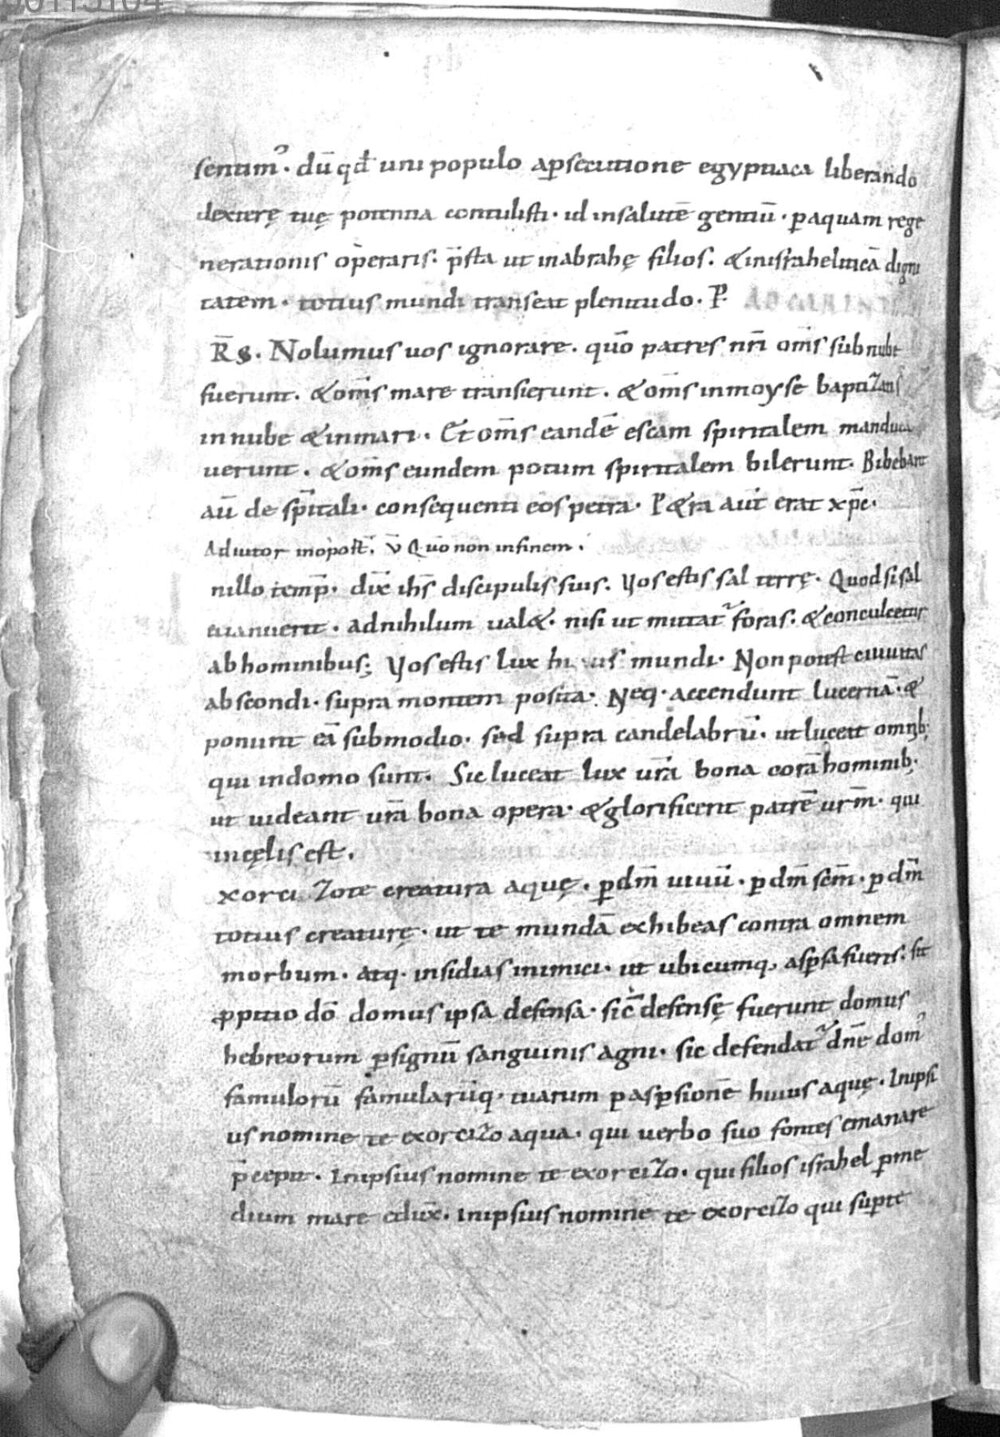 sentim᾿. dū qđ uni populo ap̱secutione egyptiaca liberando
dexterę tuę potentia contulisti. id insalutē gentiū. p̱aquam rege
nerationis op̱eraris. p̄sta ut inabrahę filios. &inisraheliticā digni
tatem. totius mundi transeat plenitudo. P̱.
R̄S. Nolumus uos ignorare. quō patres nr̄i om̄s sub nube
fuerunt. &om̄s mare transierunt. &om̄s inmoyse baptizati s̄
in nube &inmari. Et om̄s eandē escam spiritalem manduca
uerunt. &om̄s eundem potum spiritalem biberunt. Bibebant
aū de sp̄itali. consequenti eōs petra. P&ra aut̄ erat xp̄c.
Adiutor inoport̄. V̄ Quō non infinem.
nillo temp̄. dix̄ ih̄s discipulis suis. Vos estis sal terrę. Quod si sal
euanuerit. adnihilum ual&. nisi ut mittat᷑ foras. &conculcetur
ab hominibus; Vos estis lux hu us mundi. Non potest ciuitas
abscondi. supra montem posita. Neq. accendunt lucernā. &
ponunt eā submodio. sed supra candelabrū. ut luceat omnib;
qui indomo sunt. Sic luceat lux ur̄a bona corā hominib;
ut uideant ur̄a bona opera. &glorificent patrē ur̄m. qui
incęlis est.
xorcizote creatura aquę. p̱ dm̄ uiuū. p̱ dm̄ sc̄m. p̱ dm̄
totius creaturę. ut te mundā exhibeas contra omnem
morbum. atq. insidias inimici. ut ubicumq, asp̱sa fueris. sit
p̱pitio dō domus ipsa defensa. sic̄ defensę fuerunt domus
hebreorum p̱signū sanguinis agni. sic defendat᷑ dn̄e dom᾿
famulorū famularūq. tuarum p̱asp̱sionē huius aquę. Inipsi
us nomine te exorcizo aqua. qui uerbo suo fontes emanare
p̄cepit. Inipsius nomine te exorcizo. qui filios israhel p̱me
dium mare edux̄. inipsius nomine te exorcizo qui sup̱te